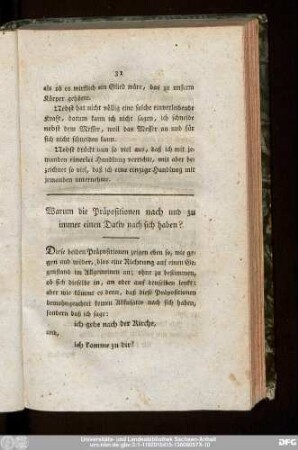 32
als ob es wirklich ein Glied wäre, das zu unserm
Körper gehört.
Nebst hat nicht völlig eine solche einverleibende
Kraft, darum kann ich nicht sagen, ich schneide
nebst dem Messer, weil das Messer an und für
sich nicht schneiden kann.
Nebst drückt nun so viel aus, daß ich mit je-
manden einerlei Handlung verrichte, mit aber be-
zeichnet so viel, daß ich eine einzige Handlung mit
jemanden unternehme.
Warum die Präpositionen nach und zu
immer einen Dativ nach sich haben?
Diese beiden Präpositionen zeigen eben so, wie ge-
gen und wider, bloß eine Richtung auf einen Ge-
genstand im Allgemeinen an; ohne zu bestimmen,
ob sich dieselbe in, an oder auf denselben lenkt:
aber wie kömmt es denn, daß diese Präpositionen
demohngeachtet keinen Akkusativ nach sich haben,
sondern daß ich sage:
ich gehe nach der Kirche,
und,
ich komme zu dir?
Universitäts- und Landesbibliothek Sachsen-Anhalt